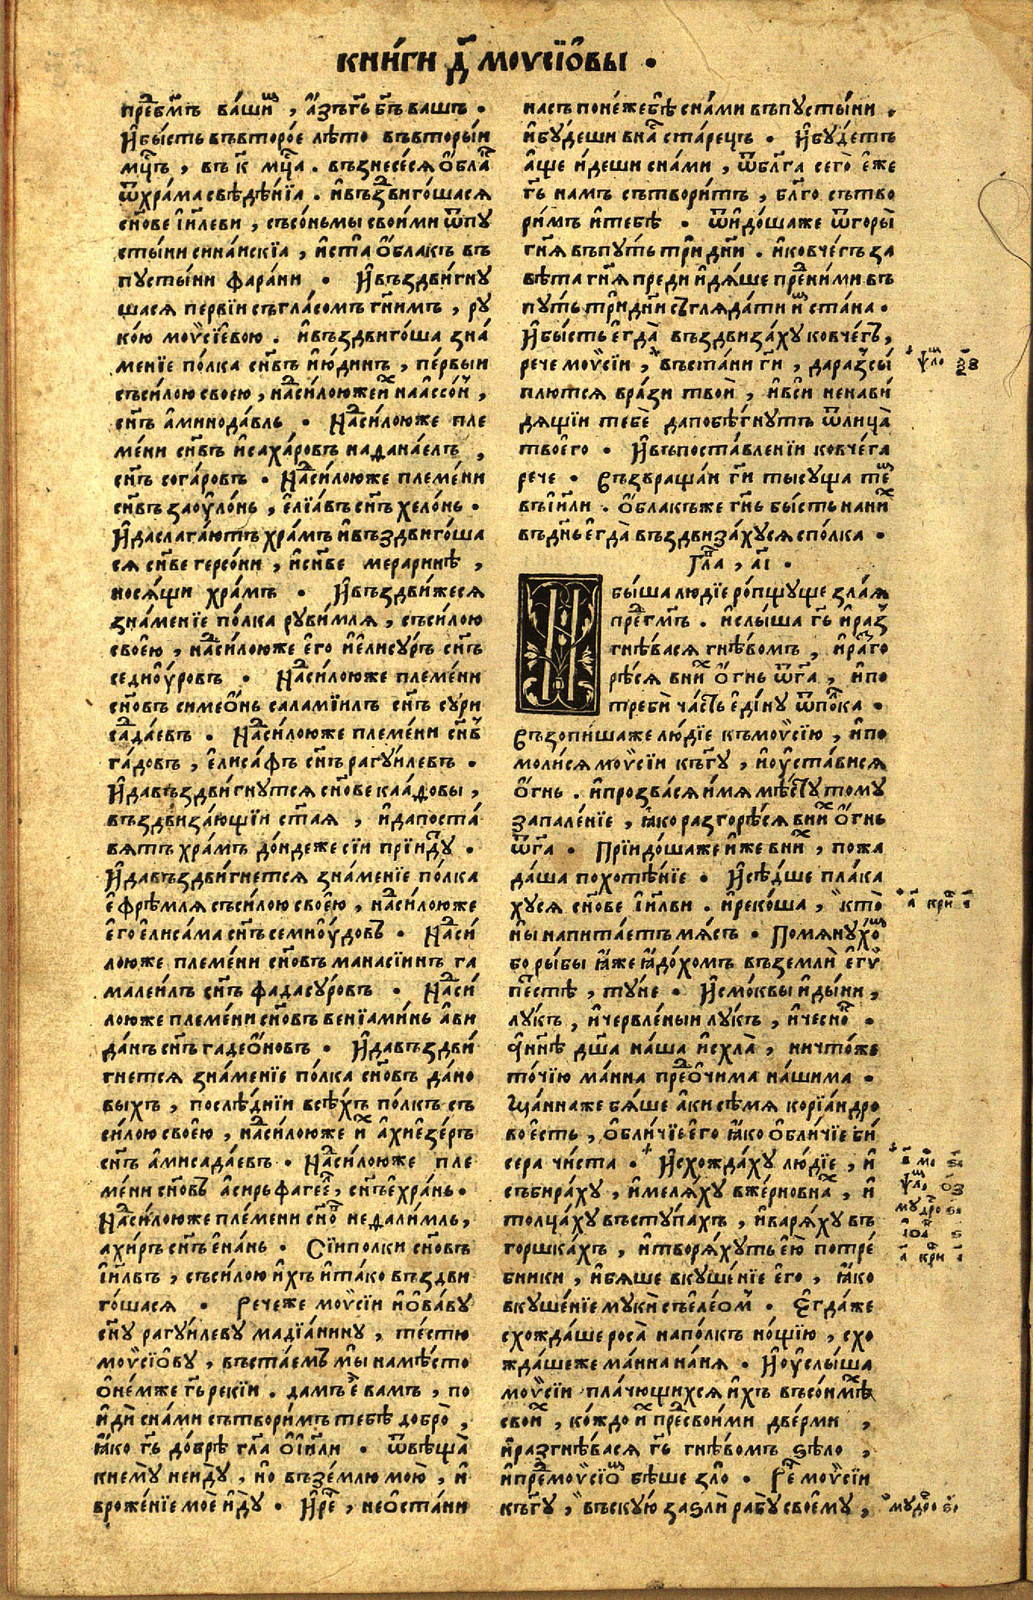 книги д҃ моѵсїѡвы .
пре́дбг҃омъ ва́шимъ , а́зъ гь҃ бг҃ъ вашъ .
И҆ бы́сть въвторо́е лѣ́то въвторы́и
мц҃ъ , въ к҃ мц҃а . възнесе́ся ѻ҆́блакъ
ѿ хра́ма свѣдѣ́нїа . и҆въздвиго́шася
сн҃ове і҆и҃леви , съсо́ньмы свои́ми ѿ пу
сты́ни сина́искїа , и҆ ста̀ ѻ҆́блакъ въ
пусты́ни фара́ни . И҆въздви́гну
шася пе́рвїи съ гла́сомъ гн҃имъ , ру
ко́ю моѵсїе́вою . и҆въздвиго́ша зна́
менїе по́лка сн҃въ и҆ю́динъ , пе́рвыи
съси́лою своею , надси́лоюже и҆хъ наассо́нъ ,
сн҃ъ а҆минода́вль . Надси́лоюже пле
ме́ни сн҃въ и҆саха́ровъ нада́наелъ ,
сн҃ъ сога́ровъ . Надси́лоюже племе́ни
сн҃въ заоуло́нь , е҆лїа́въ сн҃ъ хело́нь .
И҆да слага́ютъ хра́мъ и҆въздвиго́ша
ся сн҃ве герсо́ни , и҆ сн҃ве мерари́нѣ ,
нося́щи храмъ . И҆въздви́жеся
зна́менїе по́лка руви́мля , съси́лою
свое́ю , надси́лоюже е҆го̀ и҆елису́ръ сн҃ъ
седиоу́ровъ . Надси́лоюже племе́ни
сн҃овъ симео́нь саламїи́лъ сн҃ъ сури
сада́евъ . Надси́лоюже племе́ни сн҃въ
га́довъ , е҆лиса́фъ сн҃ъ рагуи́левъ .
И҆да въздви́гнутся сн҃ове каа́довы ,
въздвиза́ющїи ст҃ая , и҆да поста́
вятъ хра́мъ до́ндеже сїи прїи́дутъ .
И҆да въздви́гнется зна́менїе по́лка
е҆фре́мля съси́лою свое́ю , надси́лоюже
е҆го̀ е҆лиса́ма сн҃ъ семиоу́довъ . Надси́
лоюже племе́ни сн҃овъ манасїинъ га
малеи́лъ сн҃ъ фадасу́ровъ . Надси́
лоюже племе́ни сн҃овъ венїами́нь а҆ви
да́нъ сн҃ъ гадео́новъ . И҆да въздви́
гнется зна́менїе по́лка сн҃овъ да́но
выхъ , послѣ́днїи всѣ́хъ по́лкъ съ
си́лою свое́ю , надси́лоюже и҆хъ а҆хие́зеръ
сн҃ъ а҆мисада́евъ . Надси́лоюже пле
ме́ни сн҃овъ а҆си́рь фагее́лъ , сн҃ъ е҆хра́нь .
Надси́лоюже пле́мени сн҃овъ недали́мль ,
ахи́ръ сн҃ъ е҆на́нь . Сїи полки сн҃овъ
і҆и҃лвъ , съси́лою и҆́хъ и҆та́ко въздви
го́шася . Рече́же моѵси́и и҆ѻва́ву
сн҃у рагуи́леву мадїа́нину , те́стю
моѵсїо́ву , въста́емъ мы̀ на мѣ́сто
ѻ҆не́мже гь҃ рекїи . да́мъ є҆̀ вамъ , по
и҆дѝ сна́ми сътвори́мъ тебѣ̀ добро̀ ,
ꙗ҆́ко гь҃ до́брѣ гл҃а ѻ҆ і҆и҃ли . ѿвѣща̀
к нему̀ не и҆ду̀ , но̀ въ зе́млю мою̀ , и҆
в роже́нїе моѐ и҆ду̀ . И҆рече , не ѻ҆ста́ни
насъ поне́жебѣ̀ сна́ми въпусты́ни .
и҆бу́деши внасъ ста́рецъ . И҆бу́детъ
а҆́ще и҆́деши сна́ми , ѿ бл҃га сего̀ е҆́же
гь҃ намъ сътвори́тъ , бл҃го сътво
ри́мъ и҆тебѣ̀ . ѿидо́шаже ѿ горы̀
гн҃я въпу́ть три́ дн҃и . и҆ковче́гъ за
вѣ́та гн҃я преди и҆дя́ше пред ни́ми въ
пу́ть три́ дни съгляда́ти и҆мъ ста́на .
И҆бы́сть е҆гда̀ въздвиза́ху ковче́гъ ,
рече моѵси́и , въста́ни ги҃ , да разсы́
плются врази твоѝ , и҆вси́ ненави́
дящїи тебѐ да побѣ́гнутъ ѿ лица̀
твоего . И҆въ поставле́нїи ковче́га
рече . Възвраща́и ги҃ ты́суща темъ
въ і҆и҃ли . ѻ҆́блакъже гн҃ь бы́сть на ни́хъ
въ дн҃ь е҆гда̀ въздвиза́хуся с по́лка .
Гл҃а , а҃і .
И бы́ша лю́дїе ро́пщуще зла́я
пред гм҃ъ . и҆слы́ша гь҃ и҆раз
гнѣ́вася гнѣ́вомъ , и҆разго
рѣ́ся вни́хъ ѻ҆́гнь ѿ га҃ , и҆по
требѝ ча́сть е҆ди́ну ѿ по́лка .
Възопи́шаже лю́дїе къ моѵси́ю , и҆по
моли́ся моѵси́и къ гу҃ , и҆оуста́вися
ѻ҆́гнь . и҆прозва́ся и҆́мя мѣ́сту тому
запале́нїе , ꙗ҆́ко разгорѣ́ся вни́хъ ѻ҆́гнь
ѿ га҃ . Прїидо́шаже и҆́же вни́хъ , пожа
да́ша похотѣ́нїе . И҆сѣ́дше пла́ка
хуся сн҃ове і҆и҃лви . и҆реко́ша , кто̀
ны напита́етъ мя́съ . Помяну́хомъ
бо ры́бы ꙗ҆́же ꙗ҆до́хомъ въ землѝ егѵ
петстѣ , ту́не . И҆смо́квы и҆ды́ни ,
лу́къ , и҆червле́ныи лу́къ , и҆чесно́къ .
Ны́нѣ дш҃а на́ша и҆схла̀ , ничто́же
то́чїю ма́нна пред очи́ма на́шима .
Ма́ннаже бя́ше а҆́ки сѣ́мя корїа́ндро
во е҆́сть , ѻ҆бли́чїе е҆го ꙗ҆́ко ѻ҆бли́чїе би́
сера чи́ста . И҆схожда́ху лю́дїе , и҆
събира́ху , и҆меля́ху в же́рновнахъ , и҆
толца́ху въ сту́пахъ , и҆варя́ху въ
горшка́хъ , и҆творя́хуть е҆ю̀ потре́
бники , и҆бя́ше вкуше́нїе е҆го , ꙗ҆́ко
вкуше́нїе муки̂ съ еле́омъ . Е҆гда́же
схожда́ше роса̀ на по́лкъ но́щїю , схо
жда́шеже ма́нна на́ня . И҆оуслы́ша
моѵси́и пла́чющихся и҆́хъ въ со́нмѣхъ
свои́хъ , ко́ждо и҆хъ пред свои́ми две́рми ,
и҆разгнѣ́вася гь҃ гнѣ́вомъ ѕѣло̀ ,
и҆пред моѵсїо́мъ бѣ́ше зло̀ . Рече моѵси́и
къ гу҃ , въску́ю за злѝ рабу̀ свое́му ,
ѱло́м ѯ҃з
а҃ кри і҃
в҃ мо ѕ҃і
ѱло́ о҃з
мудро ѕ҃і
і҆ѻа̀ ѕ҃
а҃ кри і҃
мудро ѕ҃і